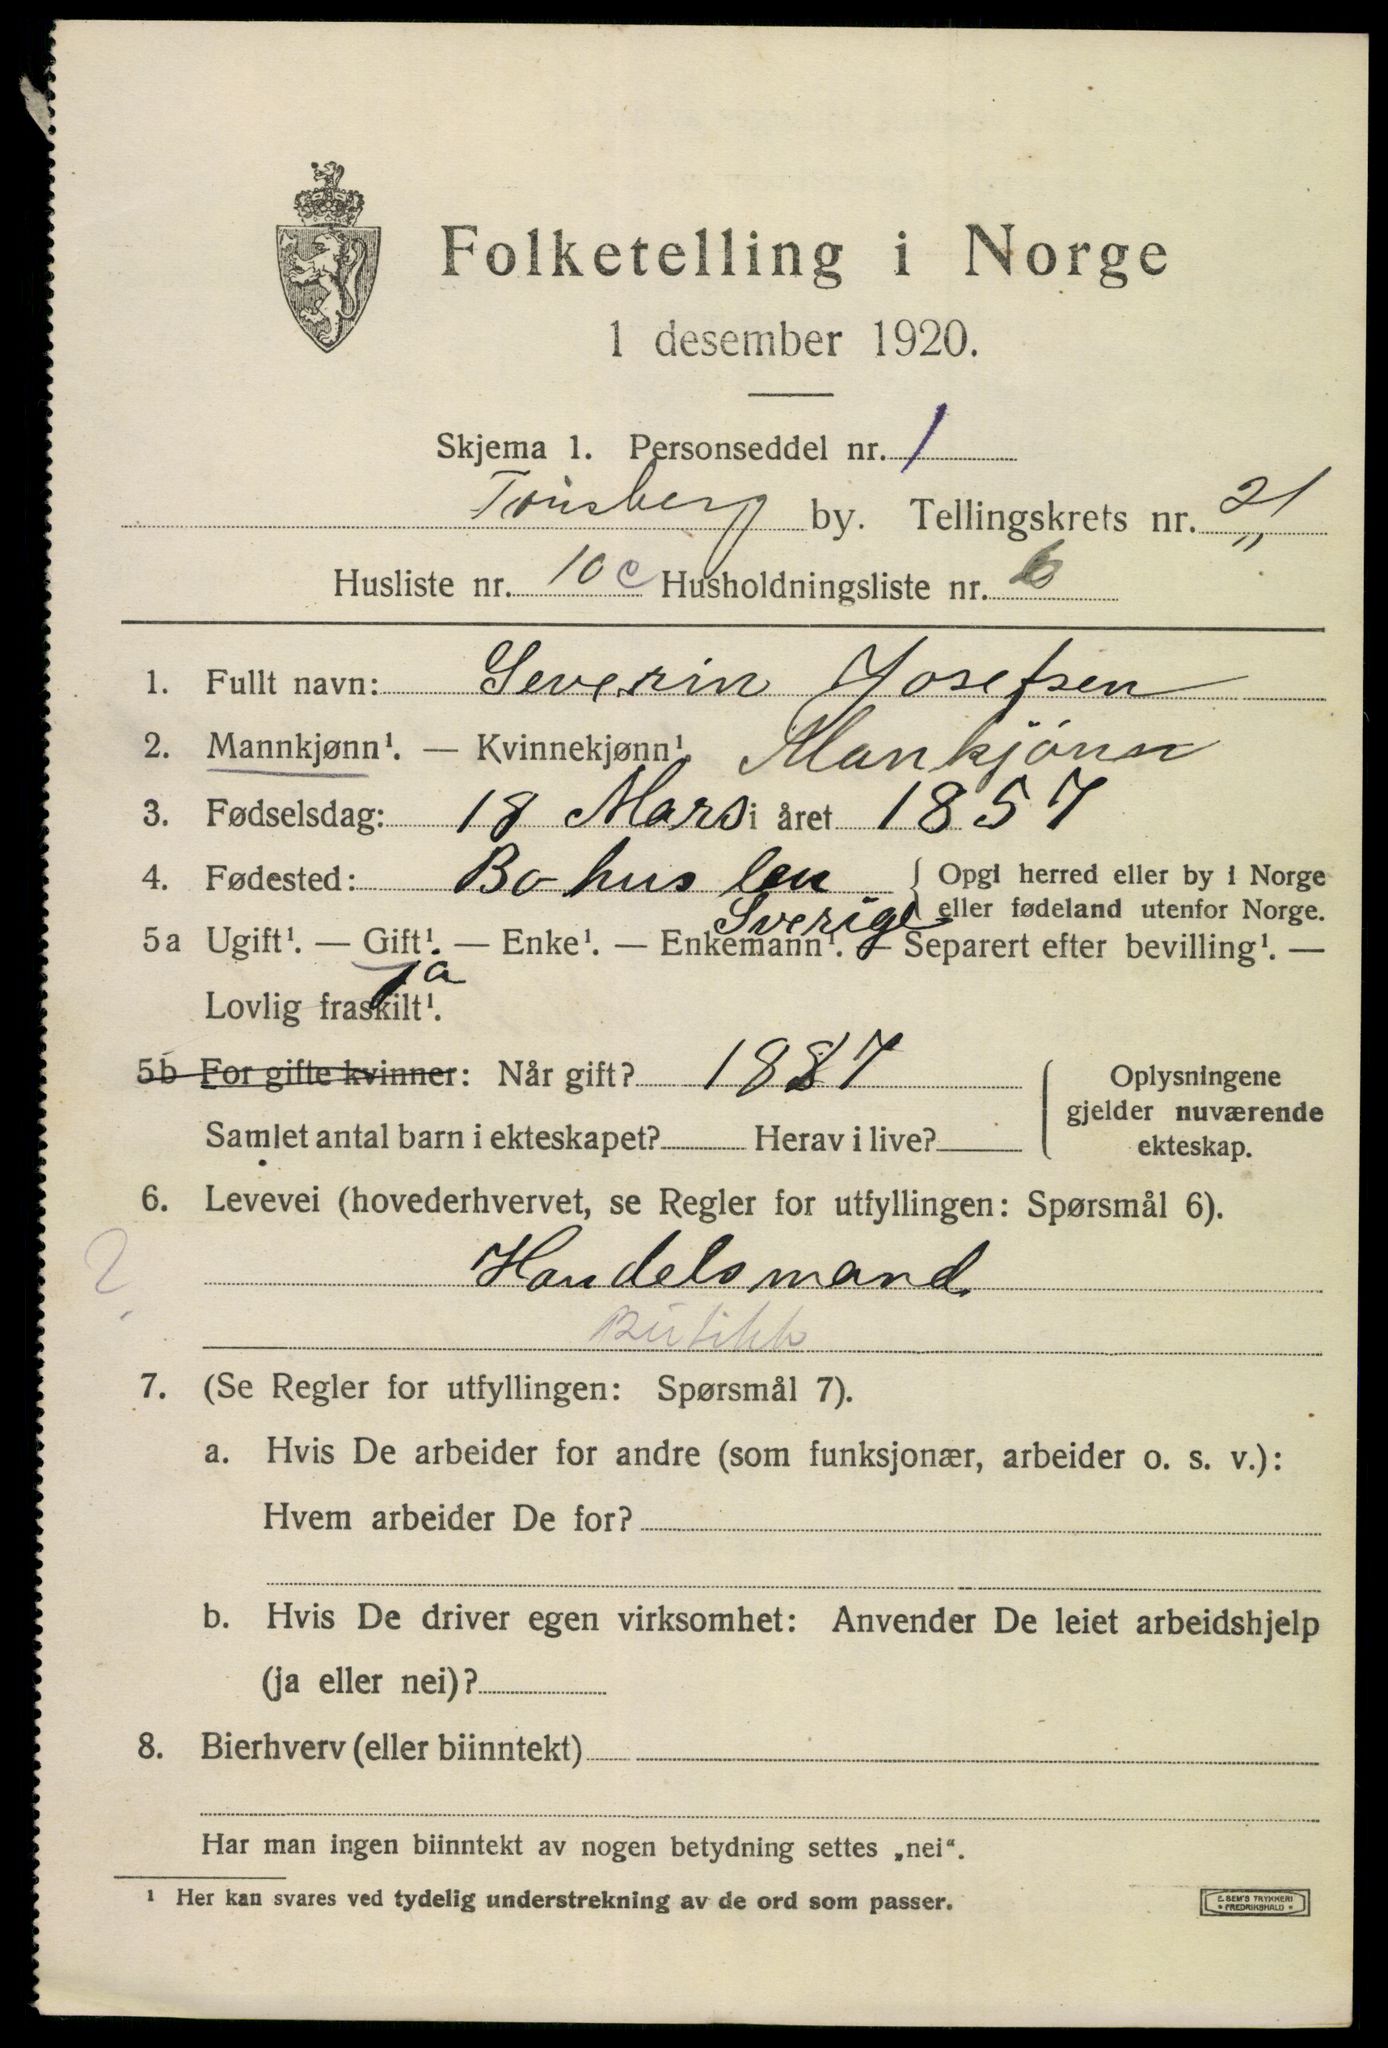 Folketelling i Norge
1 desember 1920.
Skjema 1. Personseddel nr. 1
Tønsberg by. Tellingskrets nr. 21
Husliste nr. 10 c Husholdningsliste nr. 6
1. Fullt navn: Severin Josefsen
2. Mannkjønn¹. — Kvinnekjønn¹. Mankjönn
3. Fødselsdag: 18 Mars i året 1857
4. Fødested: Bohus len { Opgi herred eller by i Norge
Sverige eller fødeland utenfor Norge.
5a Ugift¹. — Gift¹. — Enke¹. — Enkemann¹. — Separert efter bevilling¹. —
ja
Lovlig fraskilt¹.
5b For gifte kvinner: Når gift? 1887 Oplysningene
gjelder nuværende
Samlet antal barn i ekteskapet? Herav i live? ekteskap.
6. Levevei (hovederhvervet, se Regler for utfyllingen: Spørsmål 6).
2
Handelsmand
Butikk
7. (Se Regler for utfyllingen: Spørsmål 7).
a. Hvis De arbeider for andre (som funksjonær, arbeider o. s. v.):
Hvem arbeider De for?
b. Hvis De driver egen virksomhet: Anvender De leiet arbeidshjelp
(ja eller nei)?
8. Bierhverv (eller biinntekt)
Har man ingen biinntekt av nogen betydning settes „nei“.
¹ Her kan svares ved tydelig understrekning av de ord som passer.
E. SEM'S TRYKKERI
* FREDRIKSHALD *